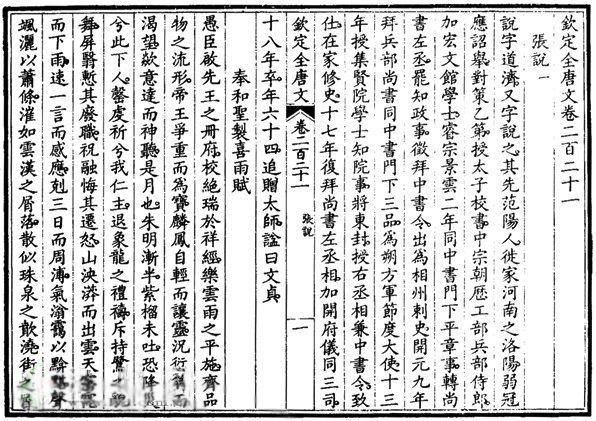 欽定全唐文卷二百二十一
張說一
說字道濟又字說之其先范陽人徙家河南之洛陽弱冠
應詔舉對策乙第授太子校書中宗朝歷工部兵部侍郎
加宏文館學士睿宗景雲二年同中書門下平章事轉尚
書左丞罷知政事徵拜中書令出為相州刺史開元九年
拜兵部尚書同中書門下三品為朔方軍節度大使十三
年授集賢院學士知院事將東封授右丞相兼中書令致
仕在家修史十七年復拜尚書左丞相加開府儀同三司
欽定全唐文
卷二百二十一
張說
一
十八年卒年六十四追贈太師諡曰文貞
奉和聖製喜雨賦
愚臣啟先王之冊府校絕瑞於祥經樂雲雨之平施齊品
物之流形帝王爭重而為寶麟鳳自輕而讓靈況衍而
渴望歎意達而神聽是月也朱明漸半紫榴未吐恐降
兮此下人罄虔祈兮我仁主退象龍之禮禱斥持鷺之
舞屏翳慙其廢職祝融悔其遷怒山泱漭而出雲天
而下雨速一言而感應剋三日而周溥氣滃靄以黯聲
颯灑以蕭條漼如雲漢之屑落散似珠泉之歕澆街之